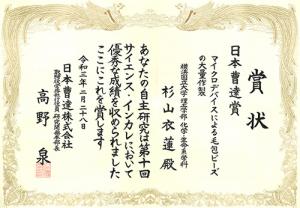 賞状
日本曹達賞
マイクロデバイスによる毛包ビーズ
の大量作製
横浜国立大学 理工学部 化学・生命系学科
杉山衣蓮 殿
あなたの自主研究は第十回
サイエンス・インカレにおいて
優秀な成績を収められました
ここにこれを賞します
令和三年二月二十八日
日本曹達株式会社
高野 泉